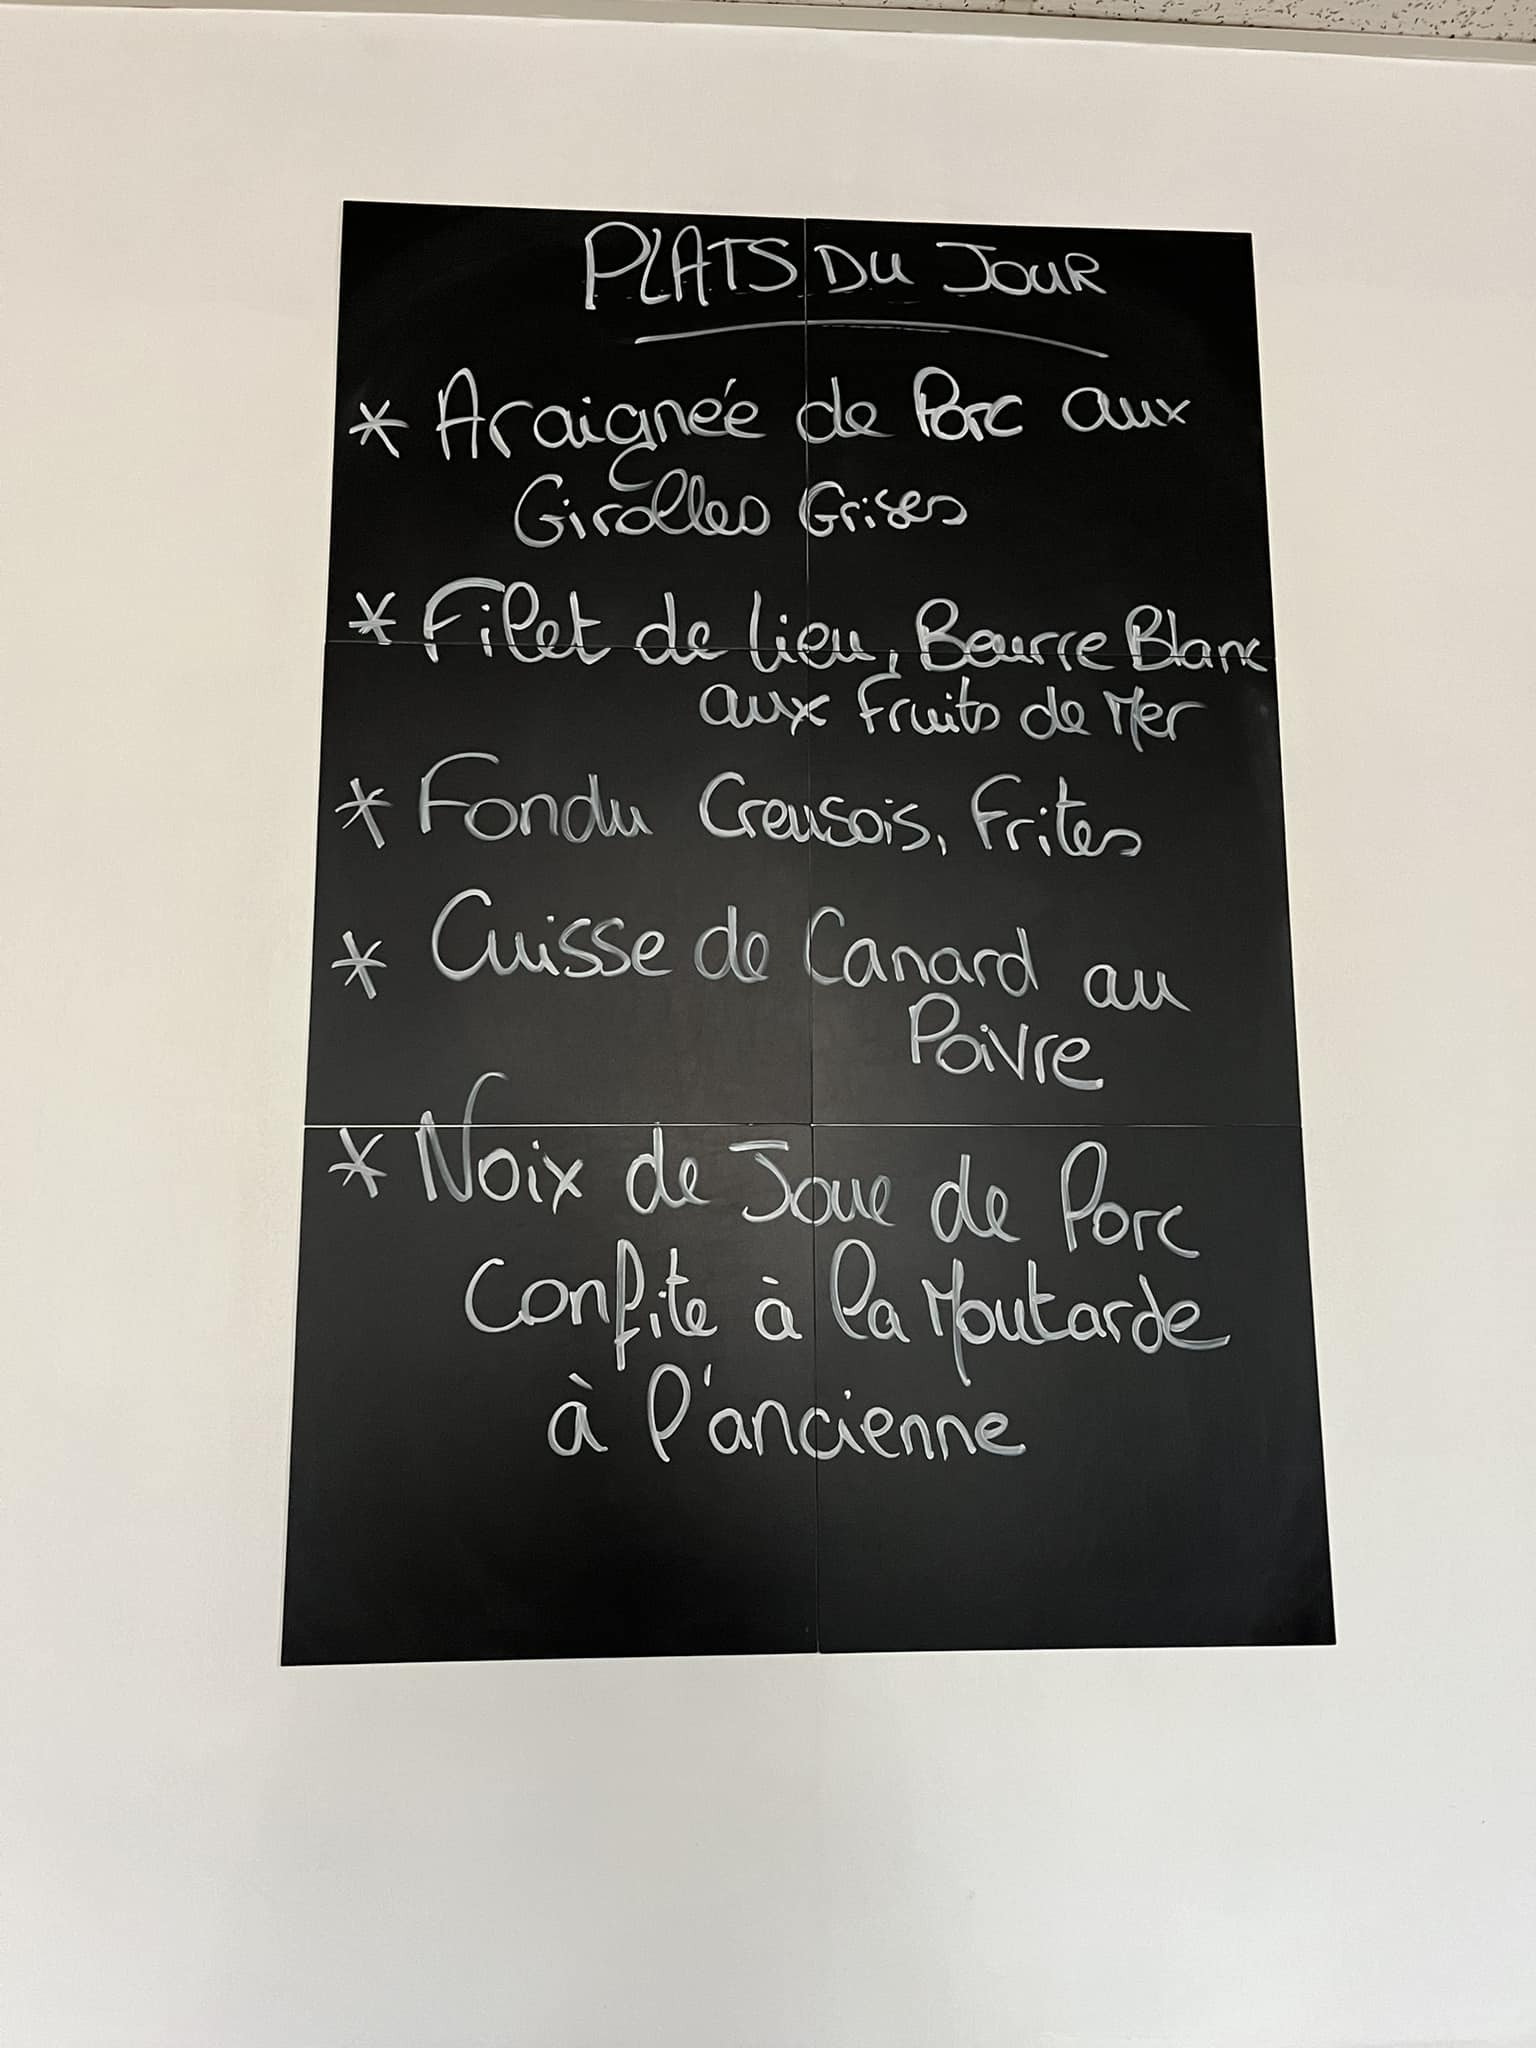 PLATS DU JOUR
* Araignée de Porc aux
Girolles Grises
* Filet de lieu, Beurre Blanc
aux Fruits de Mer
* Fondu Creusois, Frites
* Cuisse de Canard au
Poivre
* Noix de Joue de Porc
Confite à la Moutarde
à l'ancienne